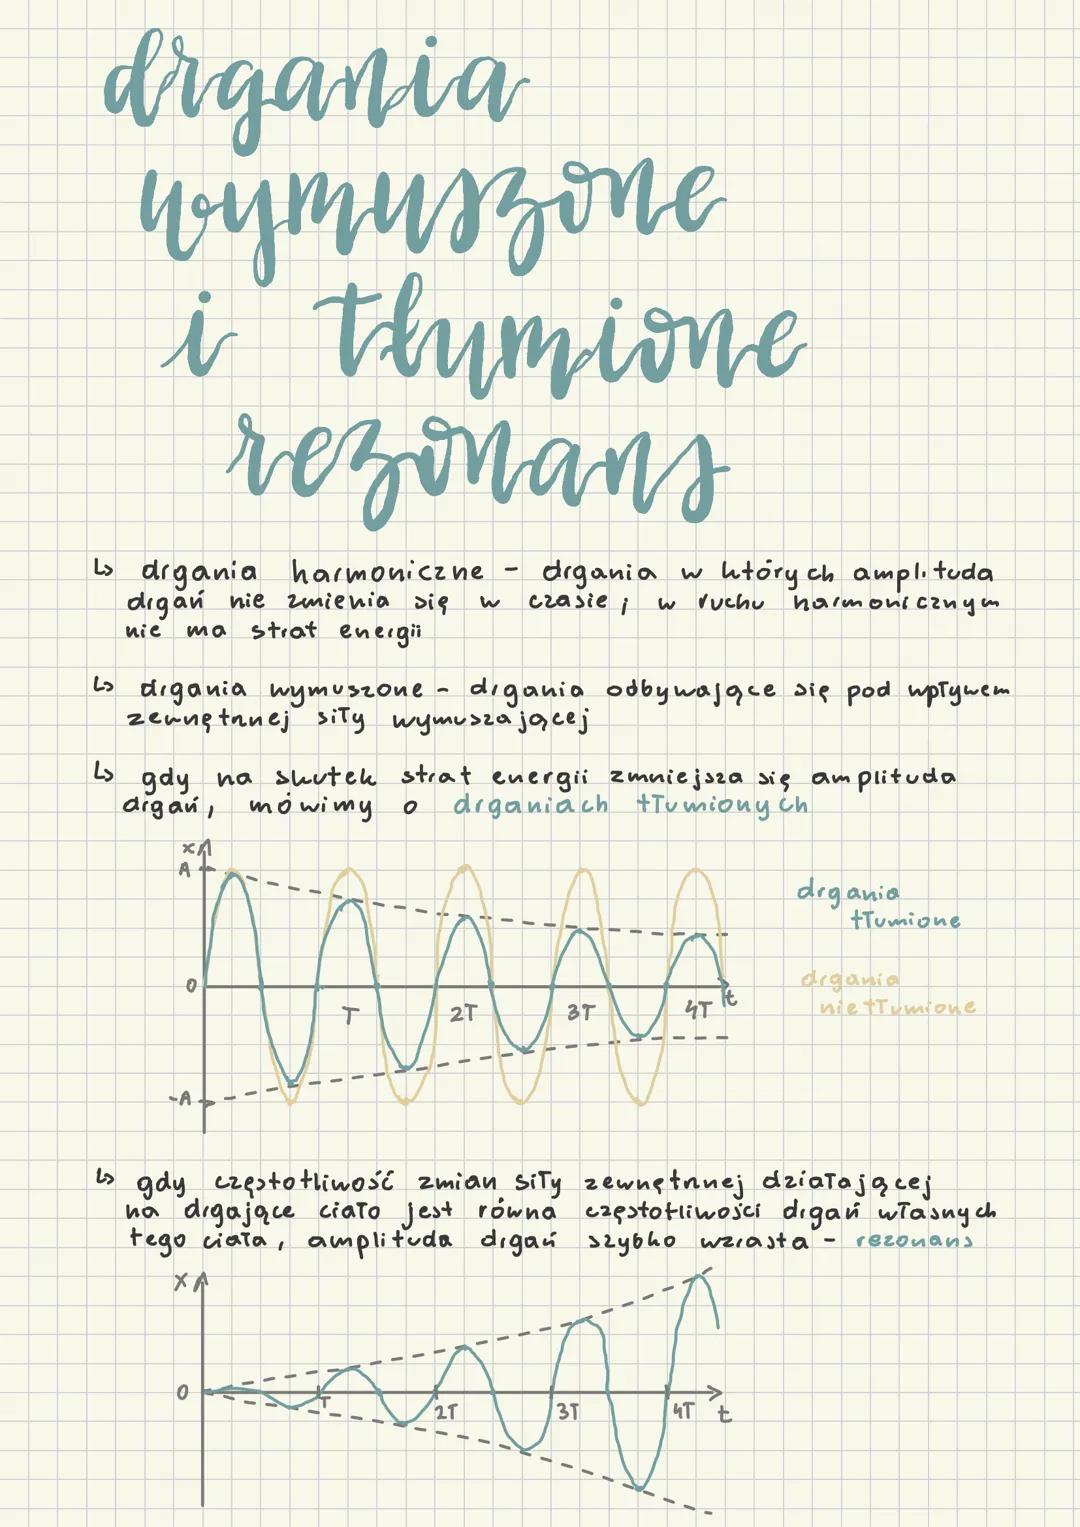 drgania
wymuszone
i tłumione
rezonans
↳ drgania harmoniczne - drgania w których amplituda
drgań nie zmienia się w czasie; w ruchu harmonicznym
nie ma strat energii
↳ drgania wymuszone - drgania odbywające się pod wpływem
zewnętrznej siły wymuszającej
↳ gdy na skutek strat energii zmniejsza się amplituda
drgań, mówimy o drganiach tłumionych
x
A
0
-A
T
2T
3T
4T
t
drgania
tłumione
drgania
nietłumione
↳ gdy częstotliwość zmian siły zewnętrznej działającej
na drgające ciało jest równa częstotliwości drgań własnych
tego ciała, amplituda drgań szybko wzrasta - rezonans
x
0
T
2T
3T
4T
t